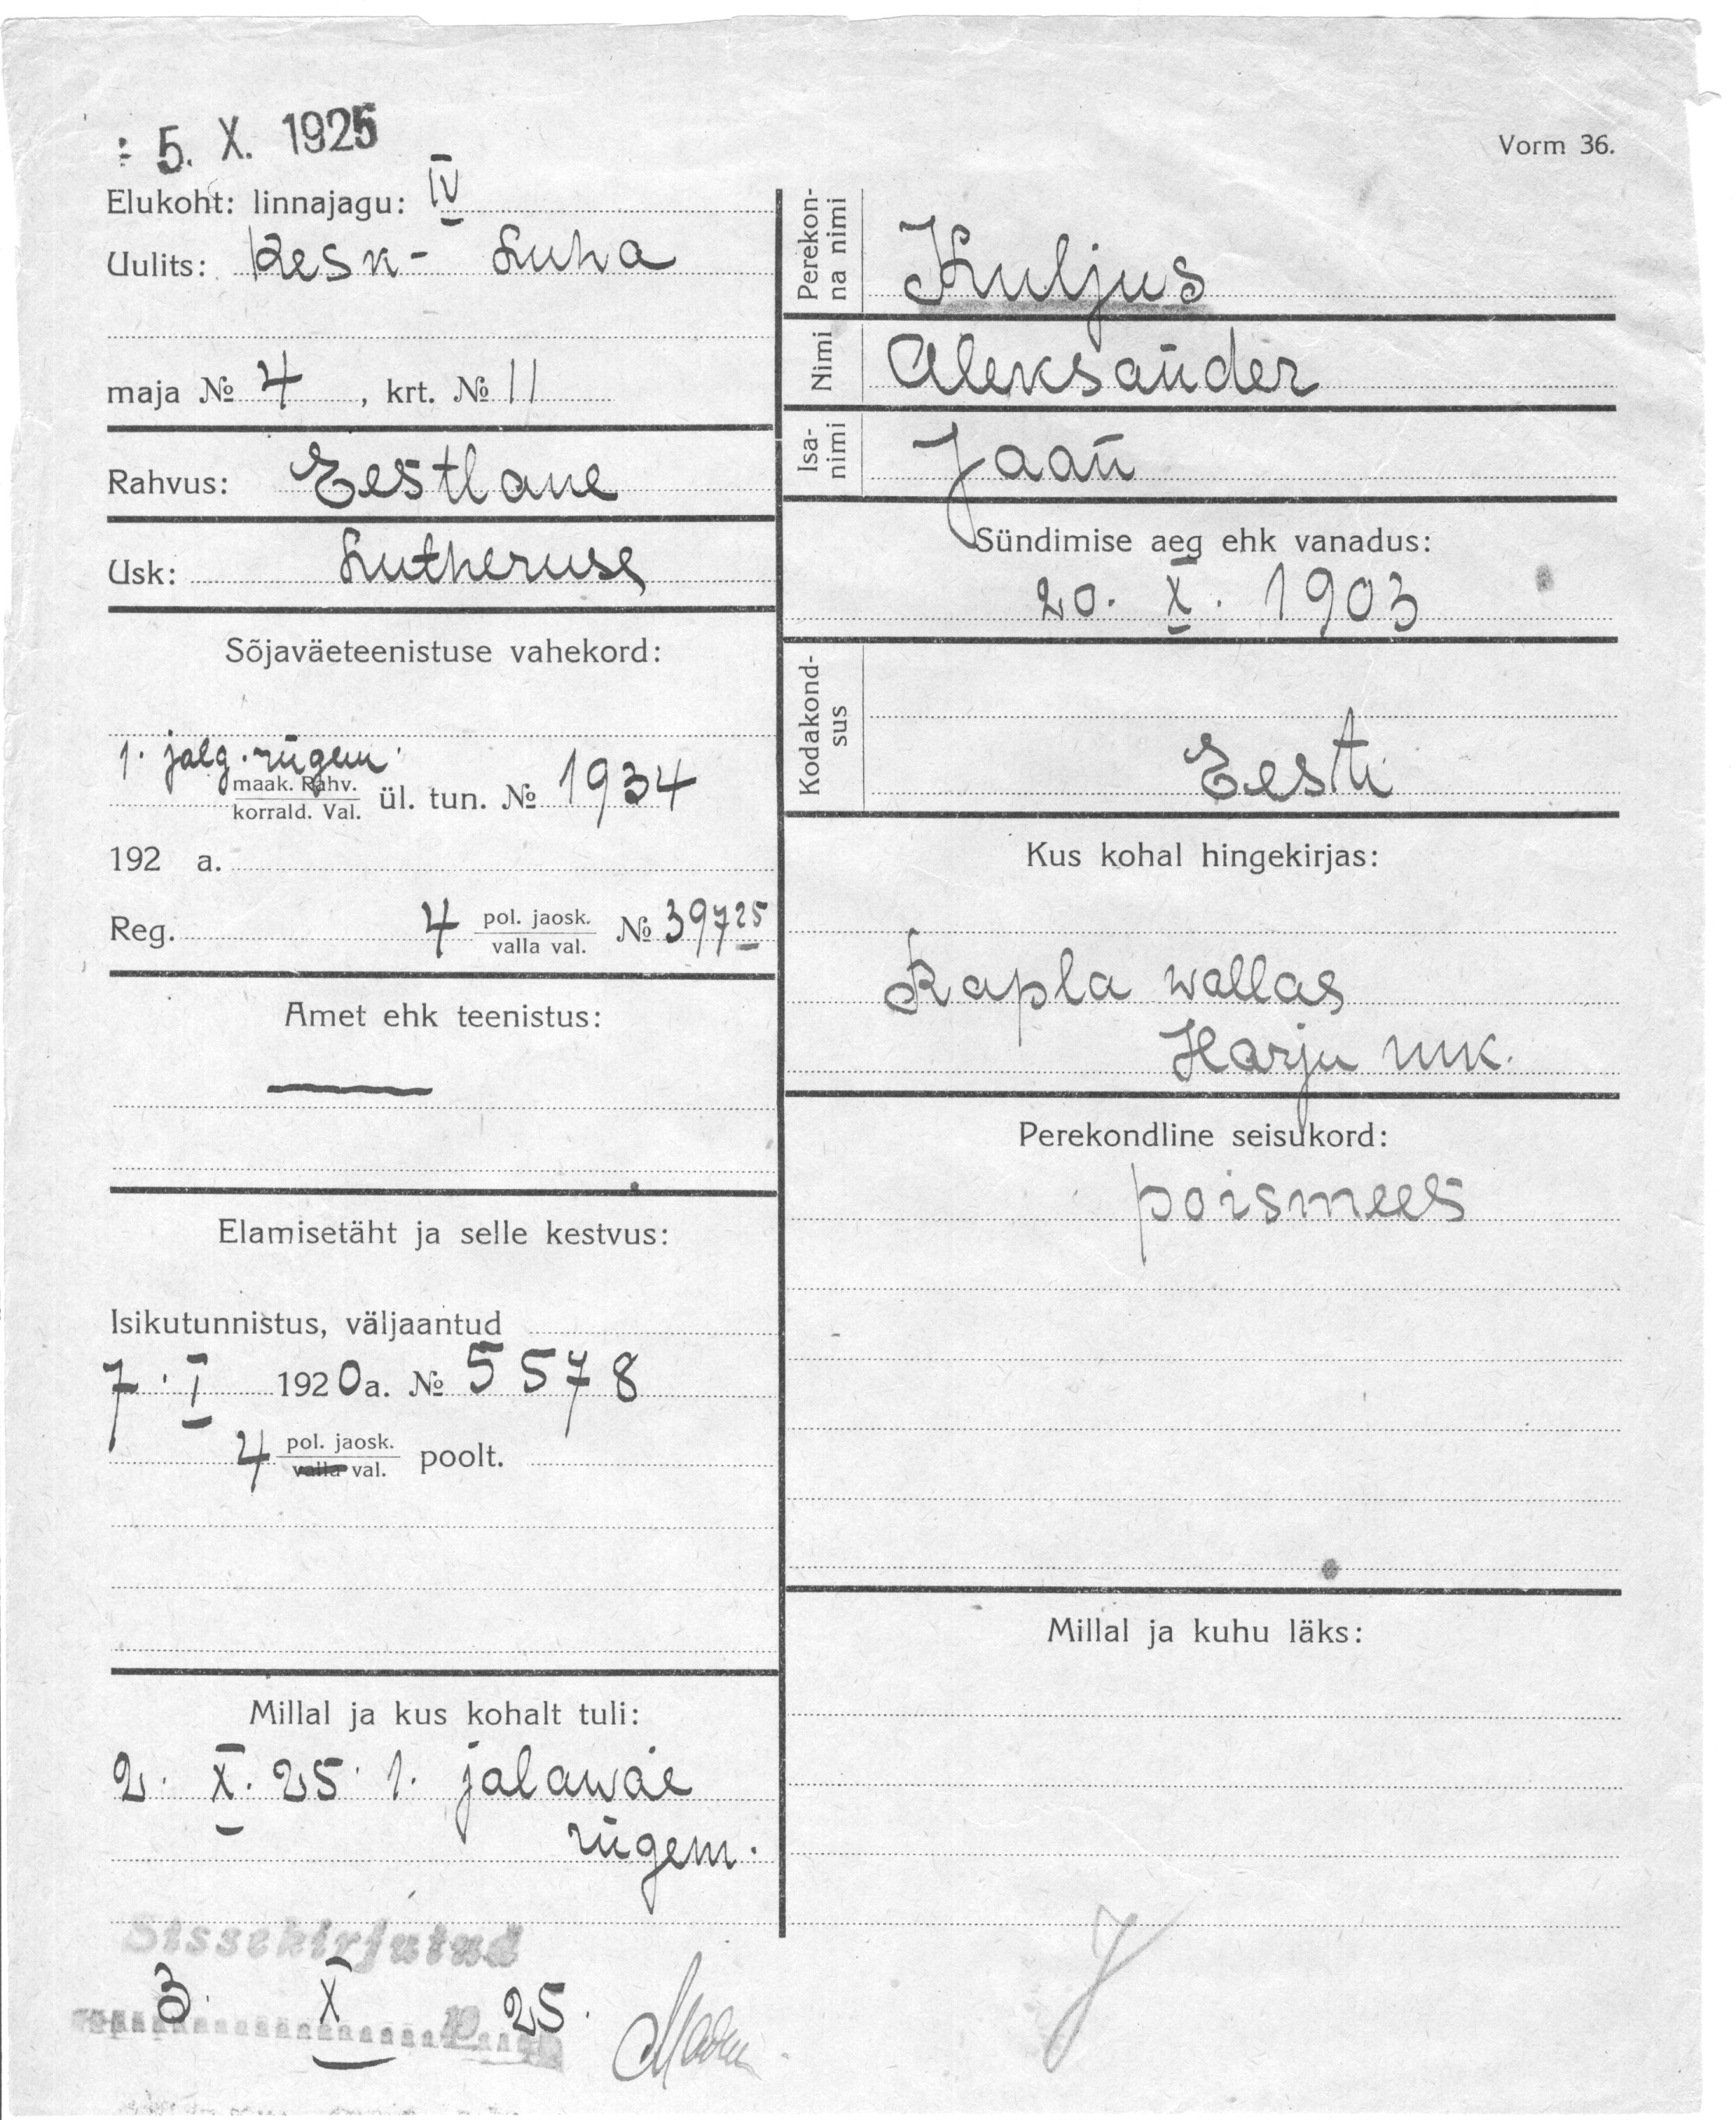 5. X. 1925
Vorm 36.
Elukoht: linnajagu: IV
Uulits: Kesk- Luha
maja № 4, krt. № 11
Rahvus: Eestlane
Usk: Lutheruse
Sõjaväeteenistuse vahekord:
1. jalg. rügem.
maak. Rahv.
korrald. Val. ül. tun. № 1934
192 a.
Reg. 4 pol. jaosk. № 39725
valla val.
Amet ehk teenistus:
—
Elamisetäht ja selle kestvus:
Isikutunnistus, väljaantud
7. I 1920 a. № 5578
4 pol. jaosk. poolt.
valla val.
Millal ja kus kohalt tuli:
2. X. 25. 1. jalawäe
rügem.
Sissekirjutud
3. X 19 25.
Perekon-
na nimi
Kuljus
Nimi
Aleksander
Isa-
nimi
Jaan
Sündimise aeg ehk vanadus:
20. X. 1903
Kodakond-
sus
Eesti
Kus kohal hingekirjas:
Rapla wallas
Harju mk.
Perekondline seisukord:
poismees
Millal ja kuhu läks: